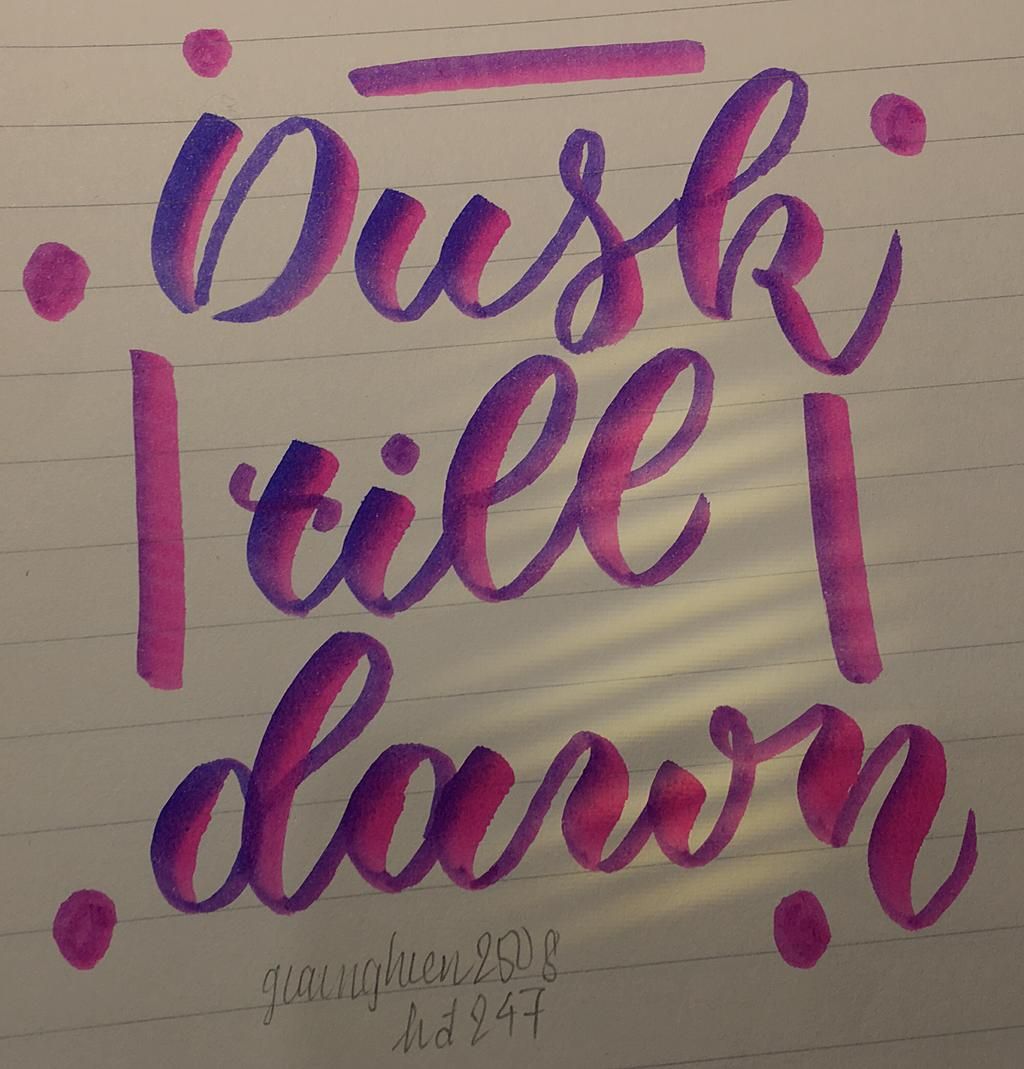 Dusk
till
dawn
giainghien2508
hd247